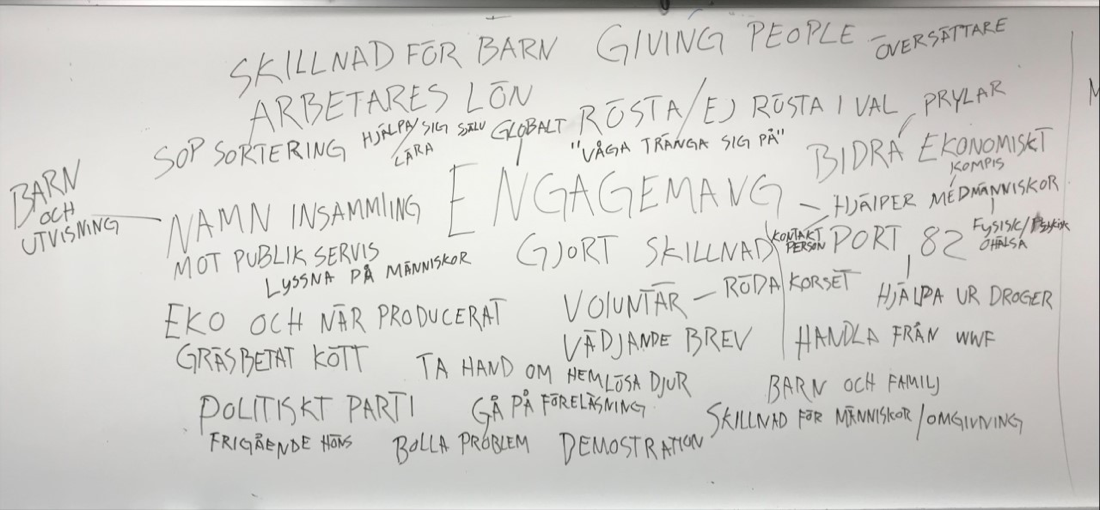 SKILLNAD FÖR BARN GIVING PEOPLE – ÖVERSÄTTARE
ARBETARES LÖN RÖSTA/EJ RÖSTA I VAL PRYLAR
SOP SORTERING HJÄLPA/SIG SJÄLV GLOBALT "VÅGA TRÄNGA SIG PÅ" BIDRA EKONOMISKT
LÄRA
KOMPIS
BARN
OCH
UTVISNING
NAMN INSAMMLING ENGAGEMANG – HJÄLPER MEDMÄNNISKOR
MOT PUBLIK SERVIS GJORT SKILLNAD KONTAKT PERSON PORT 82 FYSISK/PSYKISK OHÄLSA
LYSSNA PÅ MÄNNISKOR
EKO OCH NÄR PRODUCERAT VOLUNTÄR – RÖDA KORSET HJÄLPA UR DROGER
GRÄSBETAT KÖTT VÄDJANDE BREV HANDLA FRÅN WWF
TA HAND OM HEMLÖSA DJUR BARN OCH FAMILJ
POLITISKT PARTI GÅ PÅ FÖRELÄSNING SKILLNAD FÖR MÄNNISKOR/OMGIVNING
FRIGÅENDE HÖNS BOLLA PROBLEM DEMOSTRATION